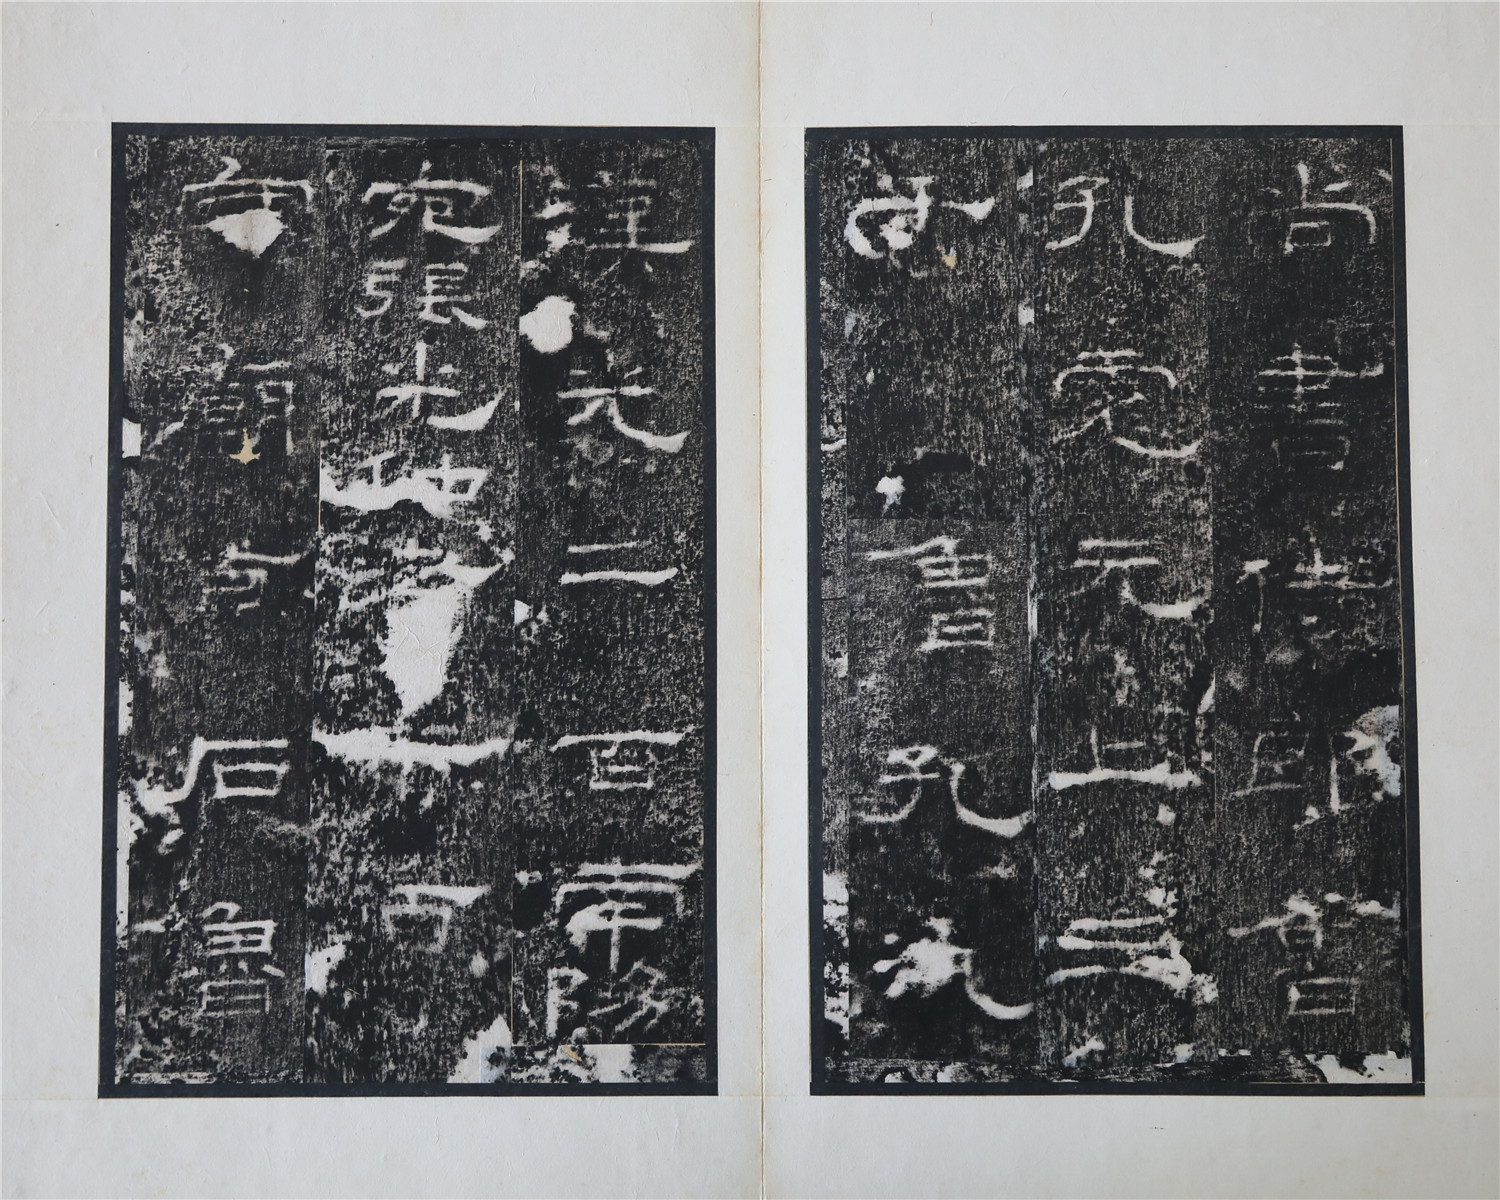 尚書侍郎魯
孔彪元上三
千魯孔汎
漢光二百南陽
宛張光仲孝二百
守廟百石魯